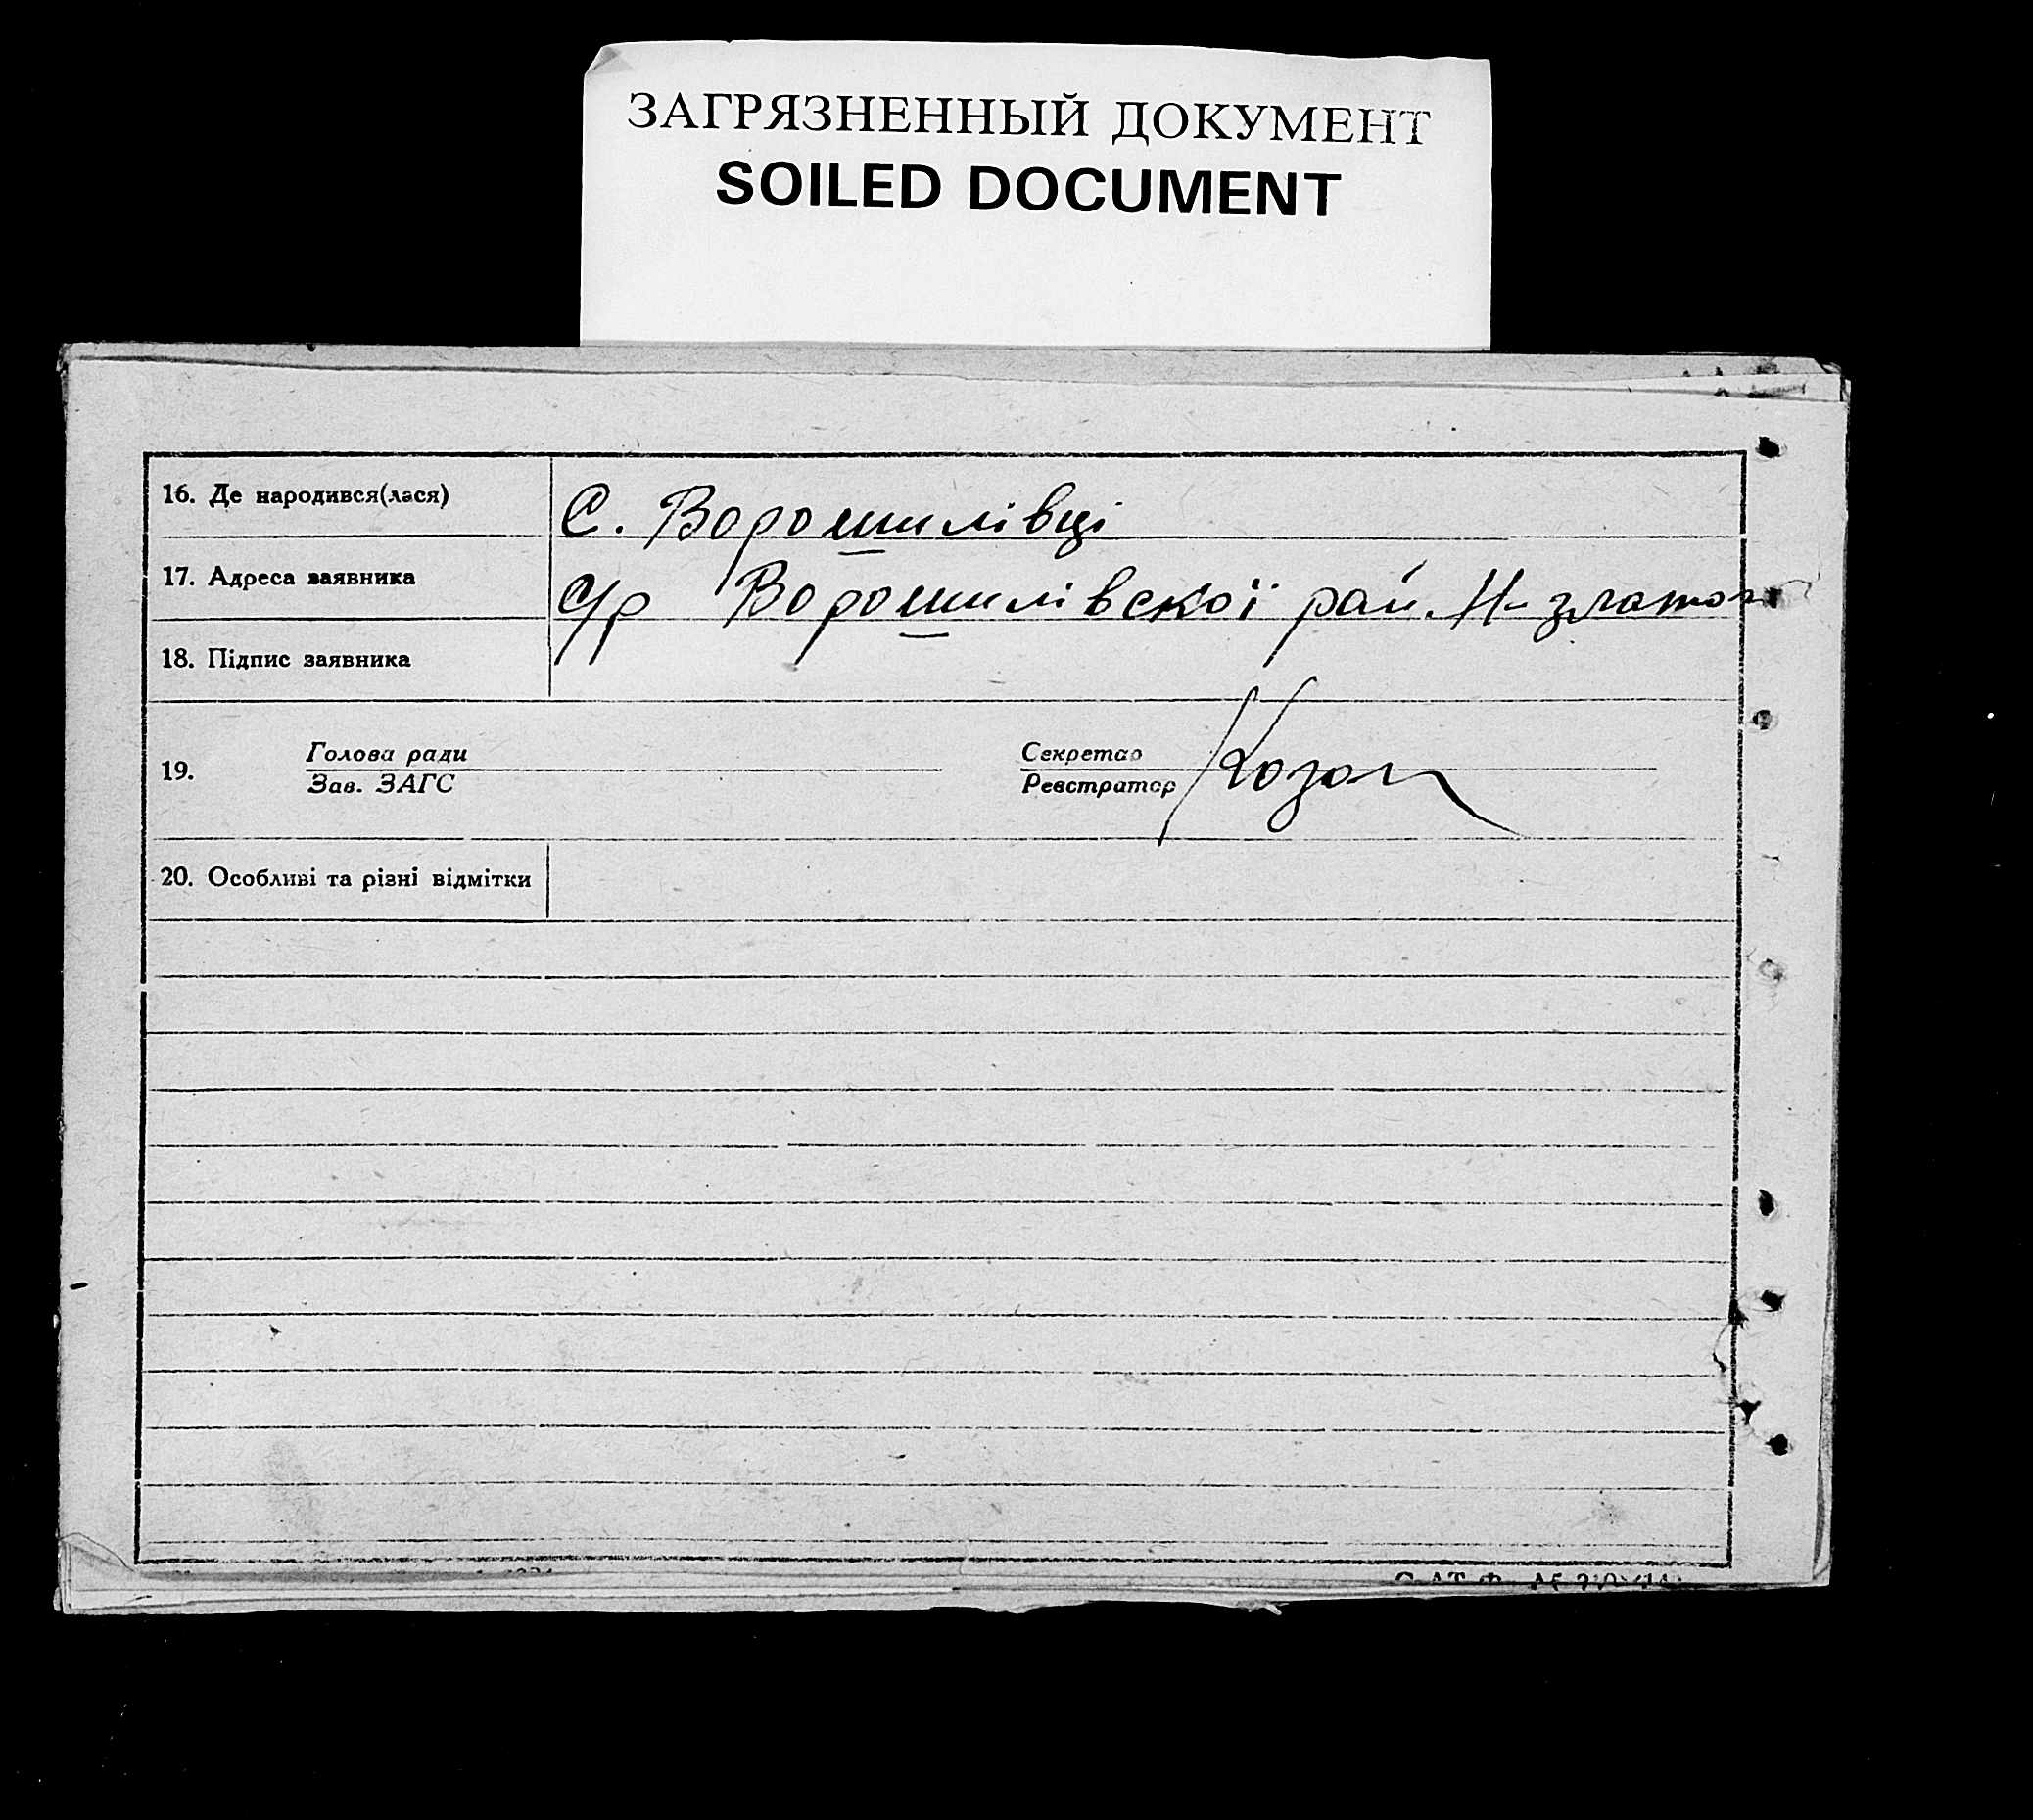 ЗАГРЯЗНЕННЫЙ ДОКУМЕНТ
SOILED DOCUMENT
16. Де народився(лася) С. Ворошилівці
17. Адреса заявника с/р Ворошилівскої рай. Н-златоп
18. Підпис заявника
19. Голова ради Секретар
Зав. ЗАГС Реєстратор
20. Особливі та різні відмітки